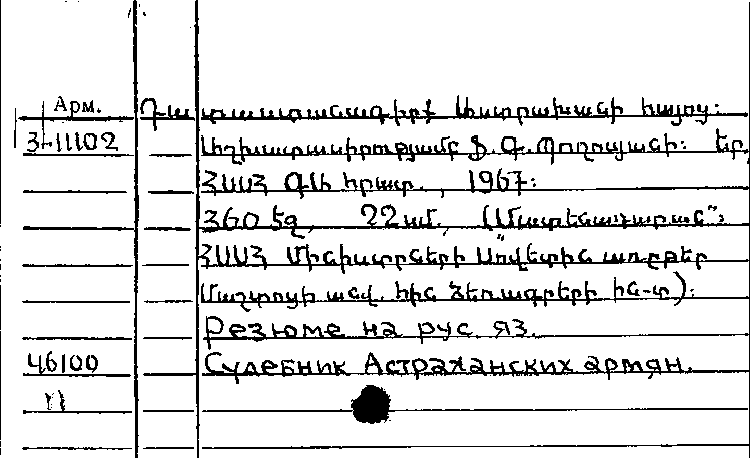 Арм.
Դատաստանագիրք Աստրախանի հայոց:
3-11102
Աշխատասիրությամբ Ֆ. Գ. Պողոսյանի: Եր.
ՀՍՍՀ ԳԱ հրատ., 1967:
360 էջ, 22 սմ, (Մատենադարան":
ՀՍՍՀ Մինիստրների Սովետին առընթեր
Մաշտոցի անվ. հին ձեռագրերի ին-տ):
Резюме на рус яз.
46100
Судебник Астраханских армян.